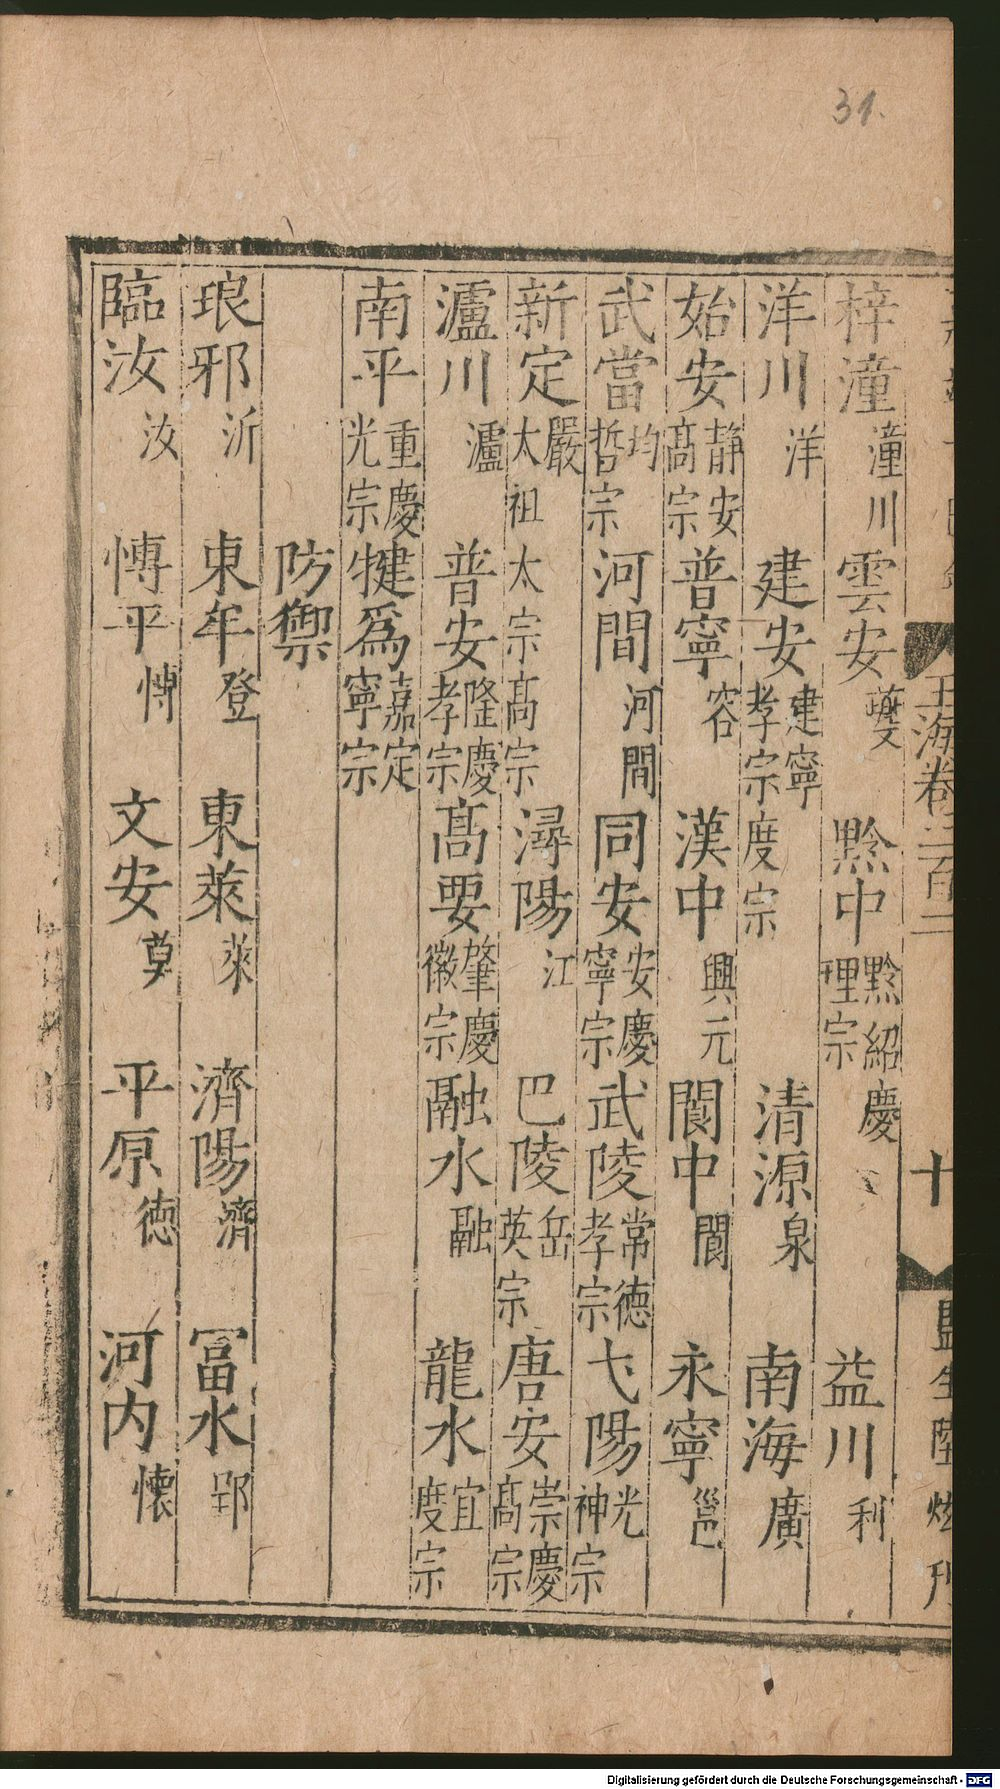 31.
玉海卷一百
十
監生陸
刊
梓潼潼川雲安夔黔中黔紹慶理宗益川利
洋川洋建安建寧孝宗度宗清源泉南海廣
始安静安高宗普寧容漢中興元閬中閬永寧邕
武當均哲宗河間河間同安安慶寧宗武陵常德孝宗弋陽光神宗
新定嚴太祖太宗高宗潯陽江巴陵岳英宗唐安崇慶高宗
瀘川瀘普安隆慶孝宗高要肇慶徽宗融水融龍水宜度宗
南平重慶光宗犍爲嘉定寧宗
防禦
琅邪沂東牟登東萊萊濟陽濟富水郢
臨汝汝博平博文安莫平原德河內懷
Digitalisierung gefördert durch die Deutsche Forschungsgemeinschaft - DFG